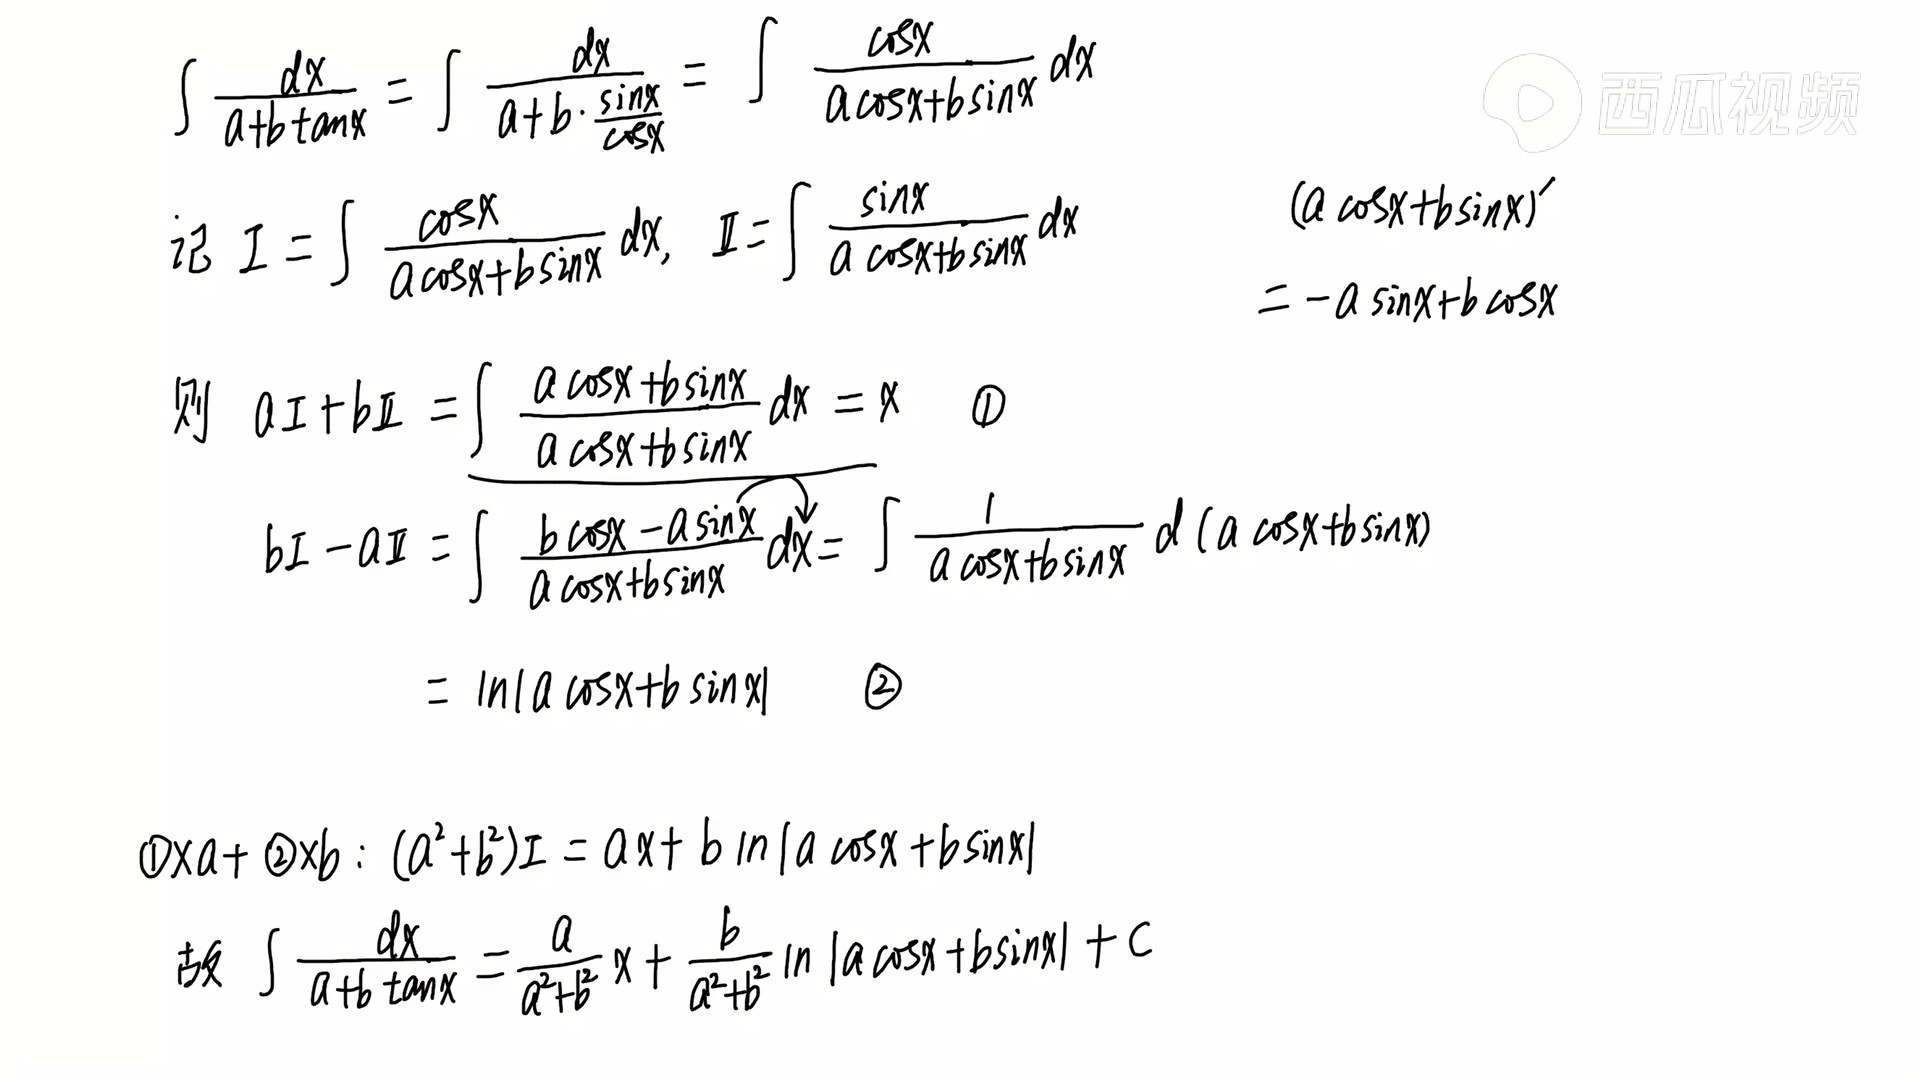 ∫ dx/(a+b tanx) = ∫ dx/(a+b·sinx/cosx) = ∫ cosx/(a cosx+b sinx) dx
西瓜视频
记 I = ∫ cosx/(a cosx+b sinx) dx, II = ∫ sinx/(a cosx+b sinx) dx
(a cosx+b sinx)′
= -a sinx+b cosx
则 aI+bII = ∫ (a cosx+b sinx)/(a cosx+b sinx) dx = x ①
bI-aII = ∫ (b cosx-a sinx)/(a cosx+b sinx) dx = ∫ 1/(a cosx+b sinx) d(a cosx+b sinx)
= ln|a cosx+b sinx| ②
①×a+②×b: (a²+b²)I = ax+b ln|a cosx+b sinx|
故 ∫ dx/(a+b tanx) = a/(a²+b²) x + b/(a²+b²) ln|a cosx+b sinx| + C